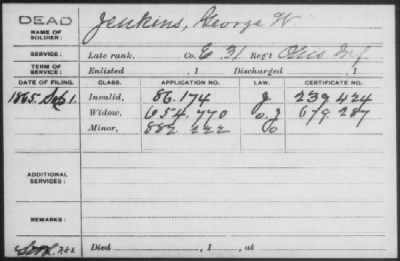 DEAD
NAME OF SOLDIER: Jenkins, George W.
SERVICE: Late rank, Co. E 31 Reg't Ohio Inf.
TERM OF SERVICE: Enlisted , 1 Discharged , 1
DATE OF FILING. CLASS. APPLICATION NO. LAW. CERTIFICATE NO.
1865. Sep 1. Invalid, 86.174 J 239.424
Widow, 654.770 679.287
Minor, 882.222
ADDITIONAL SERVICES:
REMARKS:
Died , 1 , at